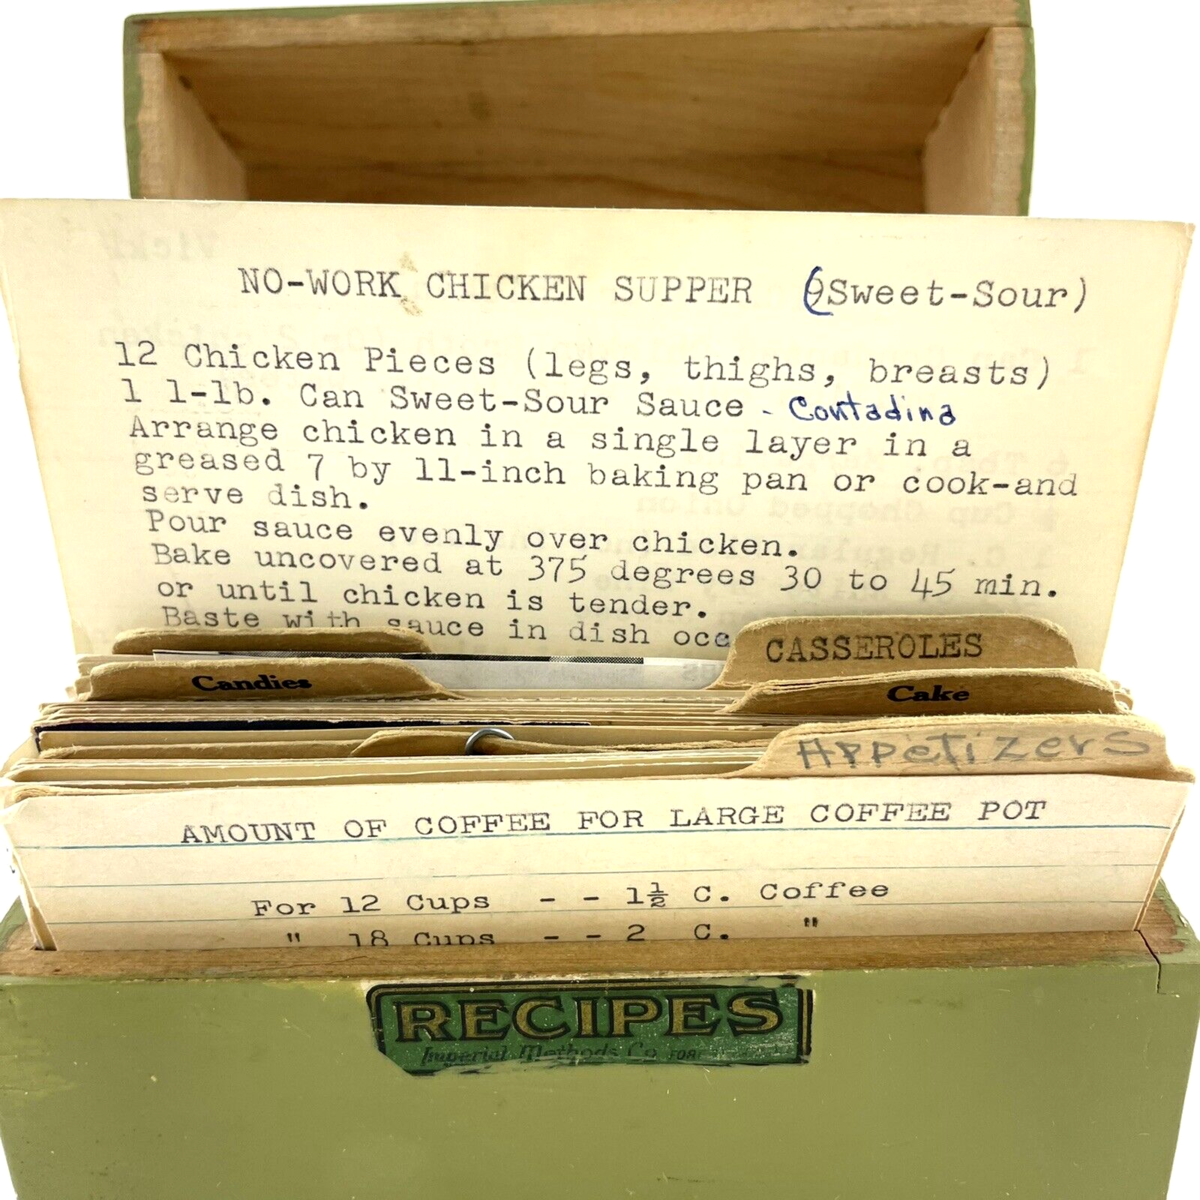 NO-WORK CHICKEN SUPPER (Sweet-Sour)
12 Chicken Pieces (legs, thighs, breasts)
1 1-lb. Can Sweet-Sour Sauce - Contadina
Arrange chicken in a single layer in a
greased 7 by 11-inch baking pan or cook-and
serve dish.
Pour sauce evenly over chicken.
Bake uncovered at 375 degrees 30 to 45 min.
or until chicken is tender.
Baste with sauce in dish
CASSEROLES
Candies
Cake
Appetizers
AMOUNT OF COFFEE FOR LARGE COFFEE POT
For 12 Cups - - 1½ C. Coffee
" 18 Cups - - 2 C. "
RECIPES
Imperial Methods Co